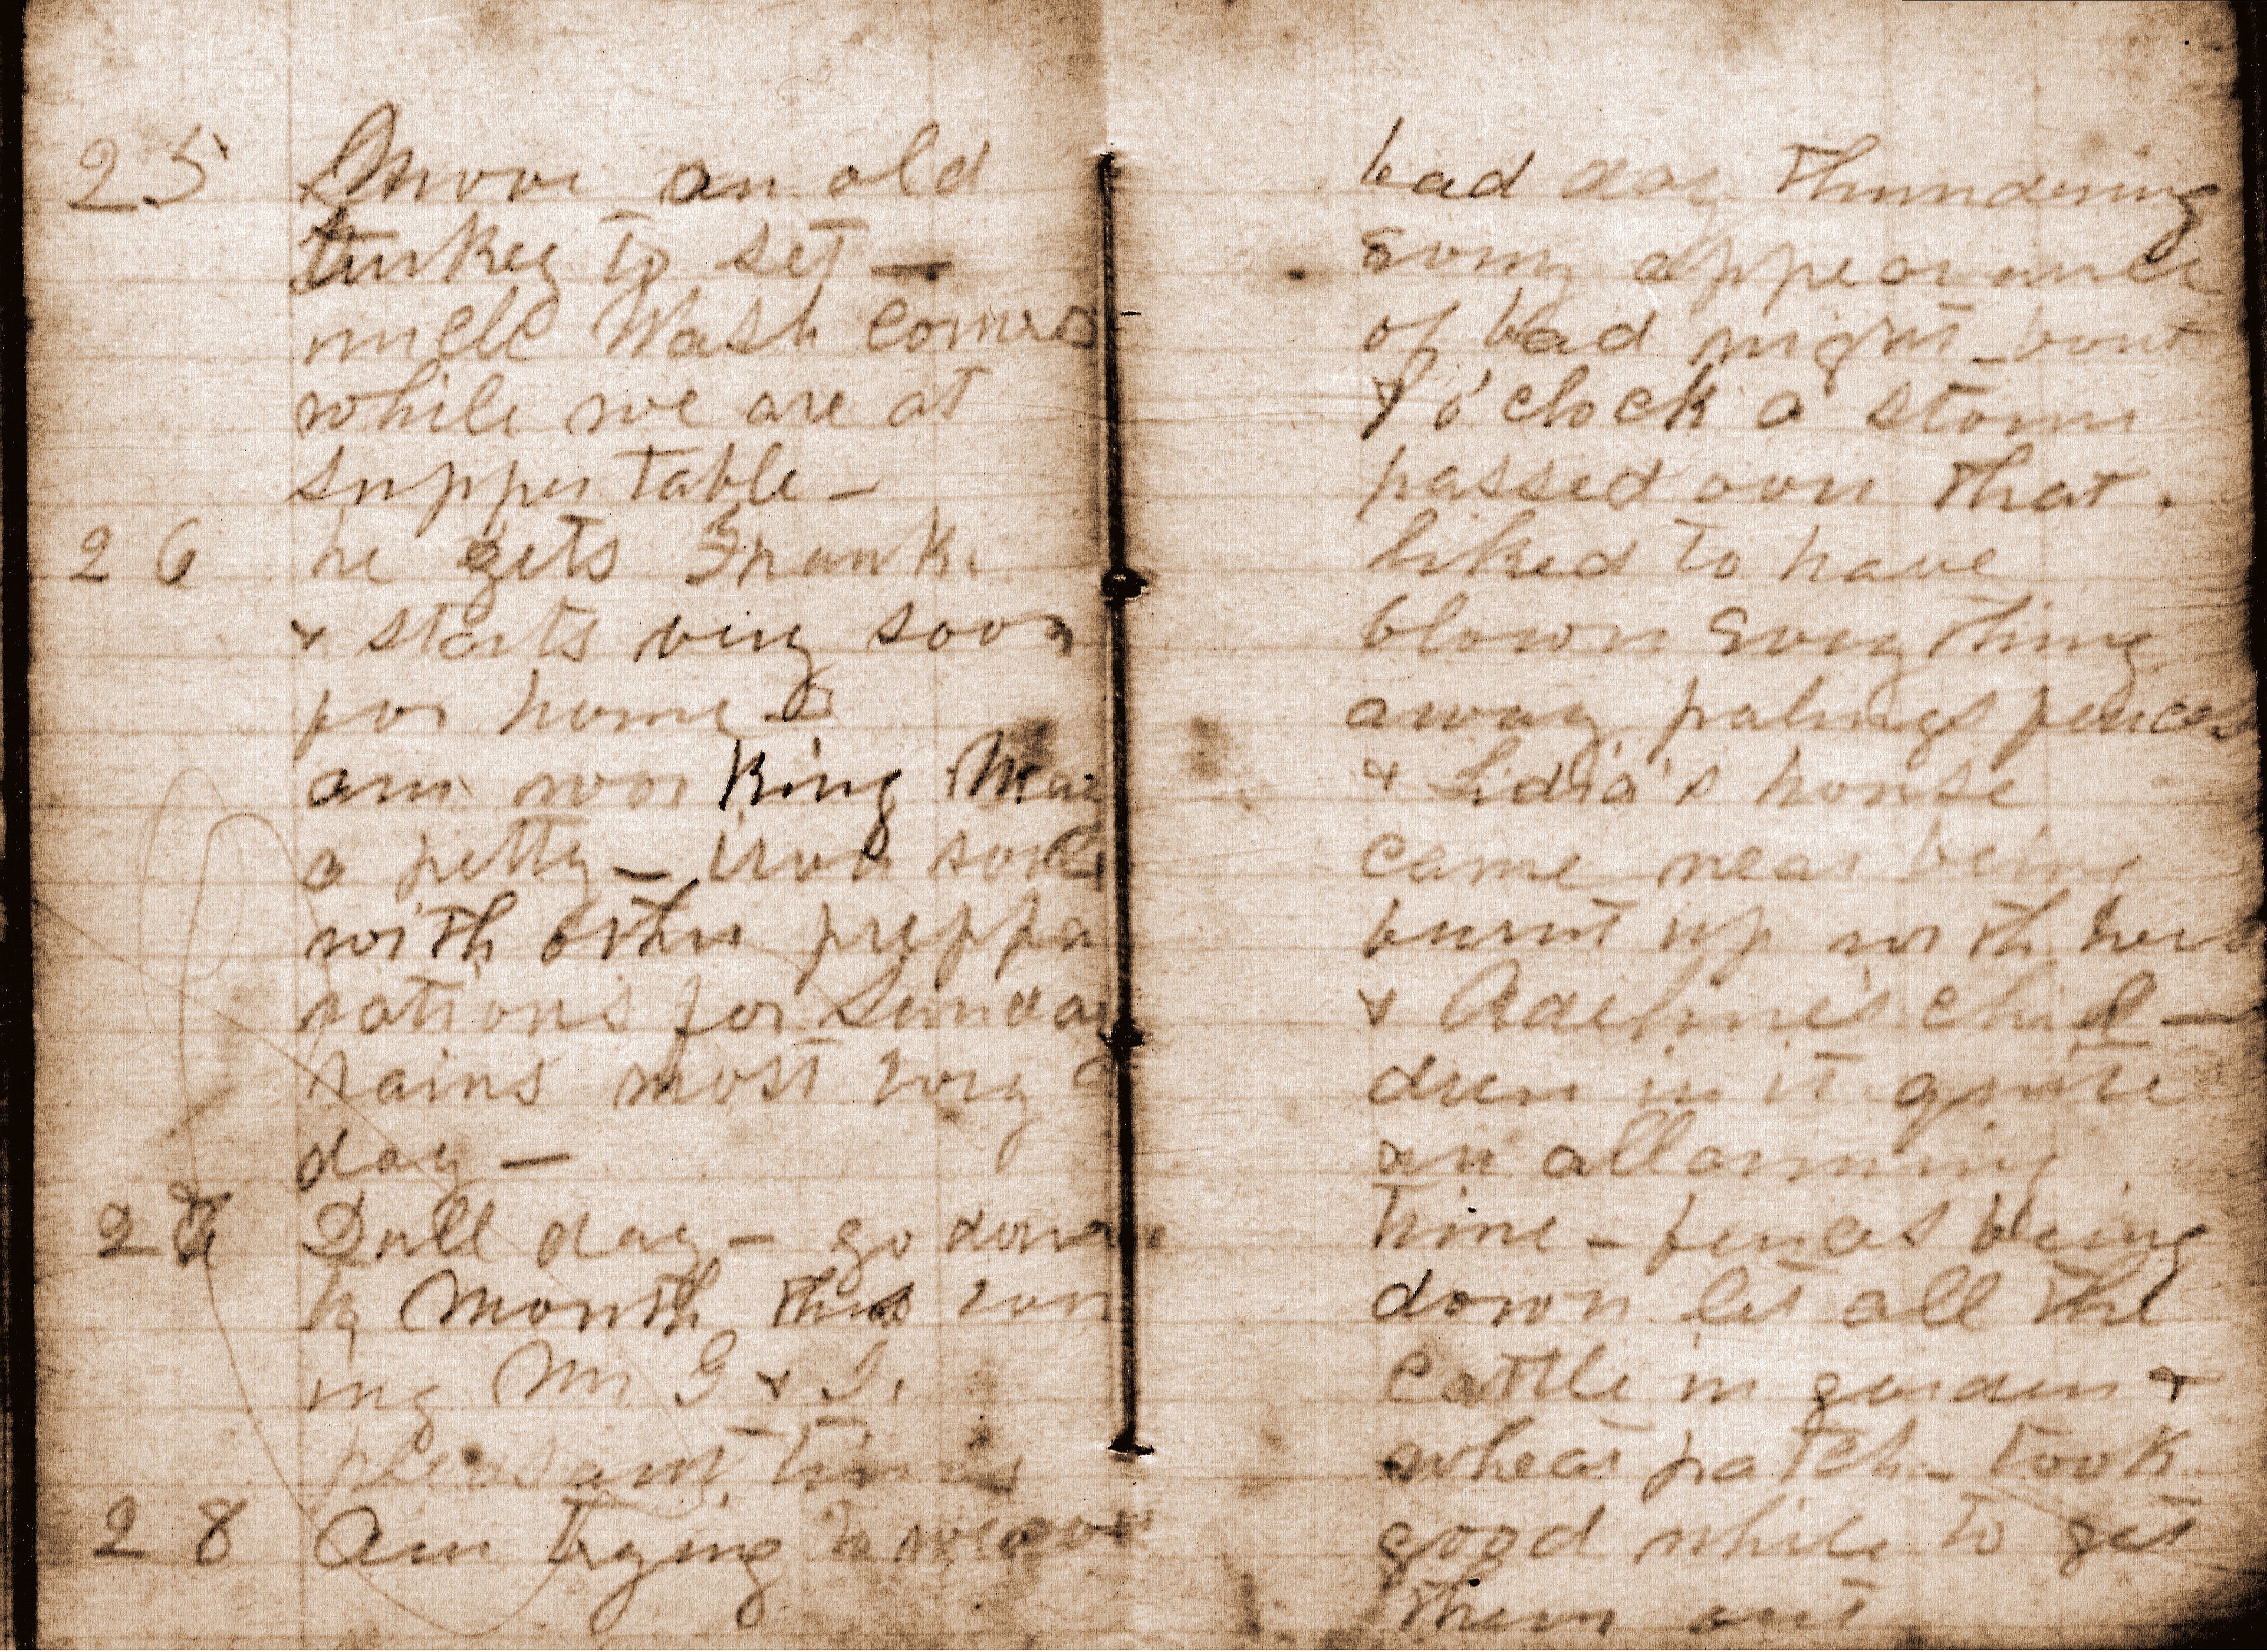 25 Moove an old
turkey to set —
uncle Wash comes
while we are at
supper table —
26 he gets Frank
& starts very soon
for home
am working May
a petty — iron sack
with other preppa
rations for Sunday
rains most evry
day —
27 Dull day — go down
to Mouth this evn
ing Mr G & I.
pleasant time
28 Am trying to weave
bad day thundering
evry appearance
of bad night — bout
o'clock a storm
passed over that
liked to have
blown evry thing
away palings fences
& Lidia's house
came near being
burnt up with her
& Adeline's chil —
dren in it quite
an allarming
time — fences being
down let all the
cattle in garden &
wheat patch — took
good while to get
them out